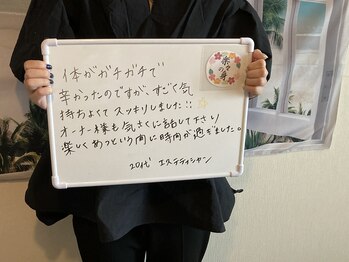 体がガチガチで
辛かったのですが、すごく気
持ちよくてスッキリしました!!
オーナー様も気さくに話して下さり
楽しくあっという間に時間が過ぎました。
20代 エステティシャン